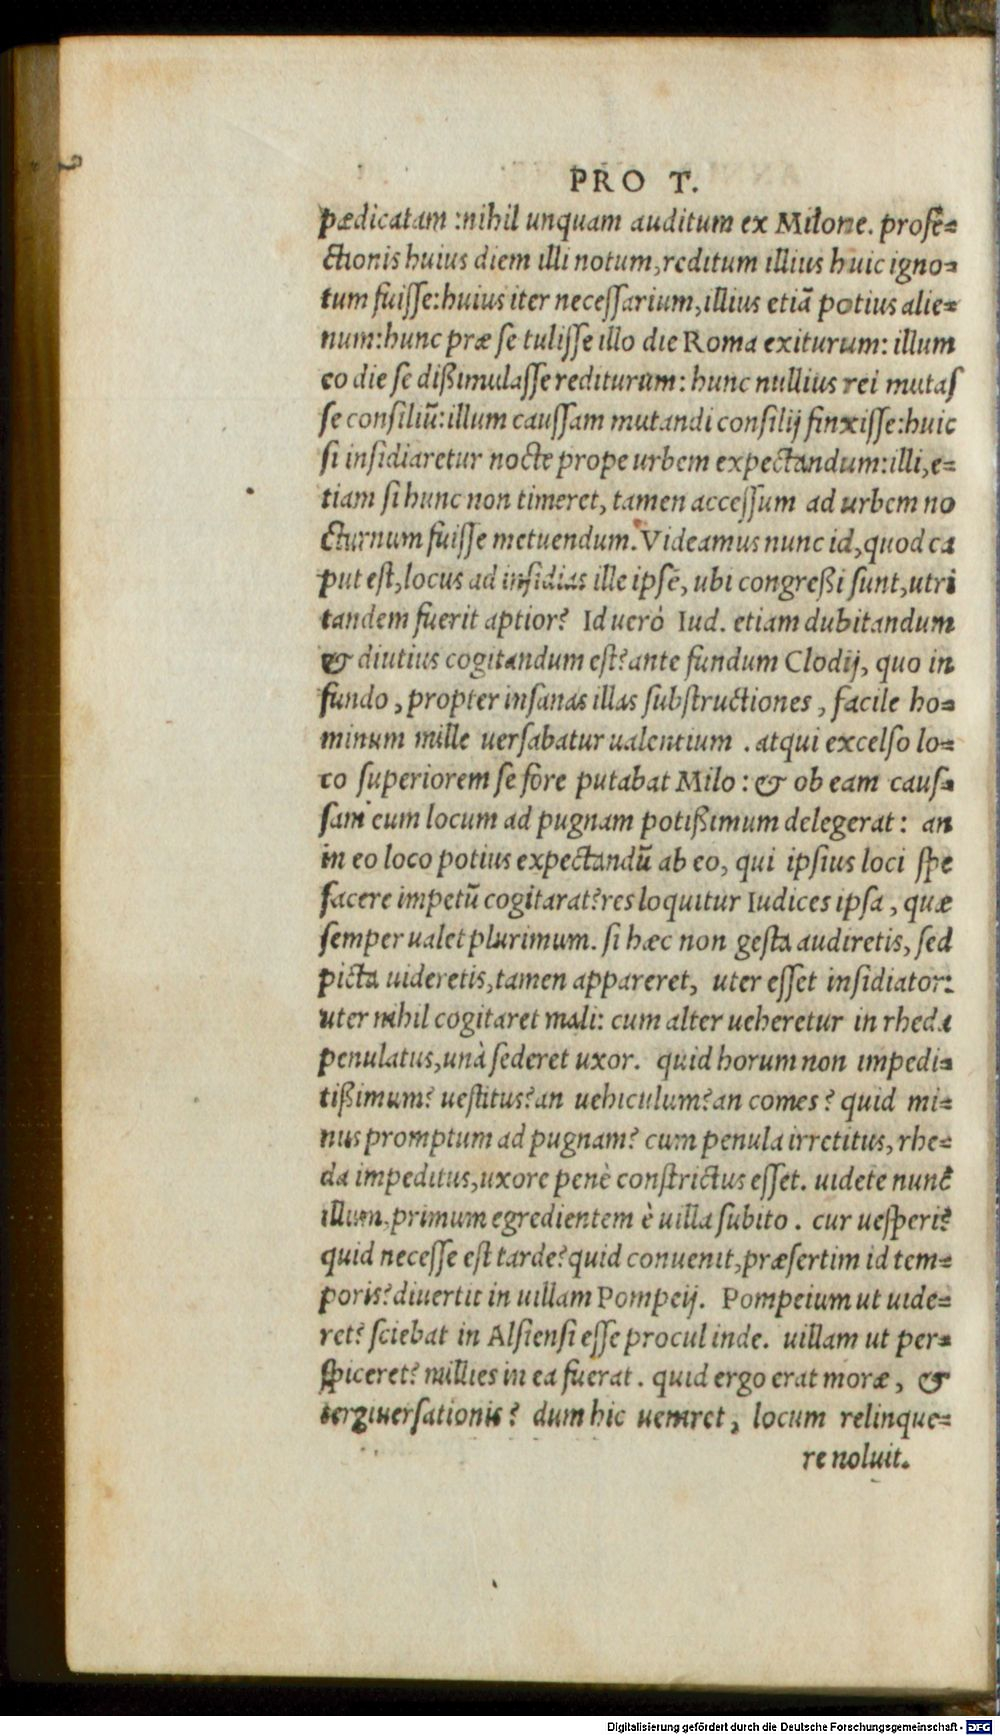 PRO T.
pædicatam :nihil unquam auditum ex Milone. profe=
ctionis huius diem illi notum,reditum illius huic igno=
tum fuiſſe:huius iter neceſſarium,illius etiã potius alie=
num:hunc præ ſe tuliſſe illo die Roma exiturum: illum
eo die ſe dißimulaſſe rediturum: hunc nullius rei mutaſ
ſe conſiliũ:illum cauſſam mutandi conſilij finxiſſe:huic
ſi inſidiaretur nocte prope urbem expectandum:illi,e=
tiam ſi hunc non timeret, tamen acceſſum ad urbem no
cturnum fuiſſe metuendum.Videamus nunc id,quod ca
put eſt,locus ad inſidias ille ipſe, ubi congreßi ſunt,utri
tandem fuerit aptior? Id uerò Iud. etiam dubitandum
& diutius cogitandum eſt?ante fundum Clodij, quo in
fundo , propter inſanas illas ſubſtructiones , facile ho=
minum mille uerſabatur ualentium . atqui excelſo lo=
co ſuperiorem ſe fore putabat Milo : & ob eam cauſ=
ſam eum locum ad pugnam potißimum delegerat : an
in eo loco potius expectandũ ab eo, qui ipſius loci ſpe
facere impetũ cogitarat?res loquitur Iudices ipſa , quæ
ſemper ualet plurimum. ſi hæc non geſta audiretis, ſed
picta uideretis,tamen appareret, uter eſſet inſidiator:
uter nihil cogitaret mali: cum alter ueheretur in rheda
penulatus,unà ſederet uxor. quid horum non impedi=
tißimum? ueſtitus?an uehiculum?an comes ? quid mi=
nus promptum ad pugnam? cum penula irretitus, rhe=
da impeditus,uxore penè conſtrictus eſſet. uidete nunc
illum,primum egredientem è uilla ſubito . cur ueſperi?
quid neceſſe eſt tarde?quid conuenit,præſertim id tem=
poris?diuertit in uillam Pompeij. Pompeium ut uide=
ret? ſciebat in Alſienſi eſſe procul inde. uillam ut per=
ſpiceret? millies in ea fuerat . quid ergo erat moræ , &
tergiuerſationis ? dum hic ueniret , locum relinque=
re noluit.
Digitalisierung gefördert durch die Deutsche Forschungsgemeinschaft - DFG